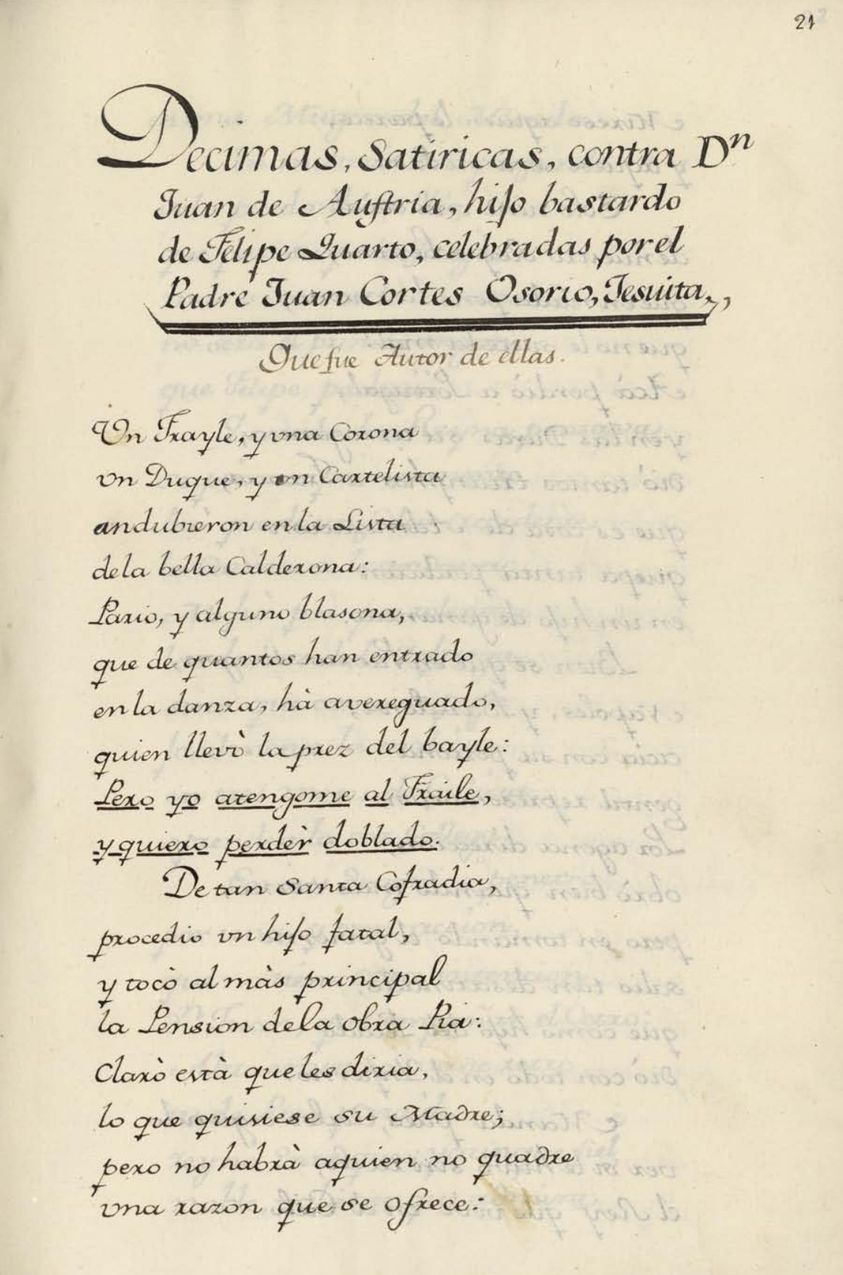 21
Decimas, Satiricas, contra Dn
Juan de Austria, hijo bastardo
de Felipe Quarto, celebradas por el
Padre Juan Cortes Osorio, Jesuita,,
Que fue Autor de ellas.
Vn Frayle, y vna Corona
vn Duque, y vn Cartelista
andubieron en la Lista
de la bella Calderona:
Pario, y alguno blasona,
que de quantos han entrado
en la danza, hà avereguado,
quien llevò la prez del bayle:
Pero yo atengome al Fraile,
y quiero perdèr doblado.
De tan Santa Cofradia,
procedio vn hijo fatal,
y tocò al màs principal
la Pension de la obra Pia:
Clarò està que les diria,
lo que quisiese su Madre;
pero no habrà aquien no quadre
vna razon que se ofrece: